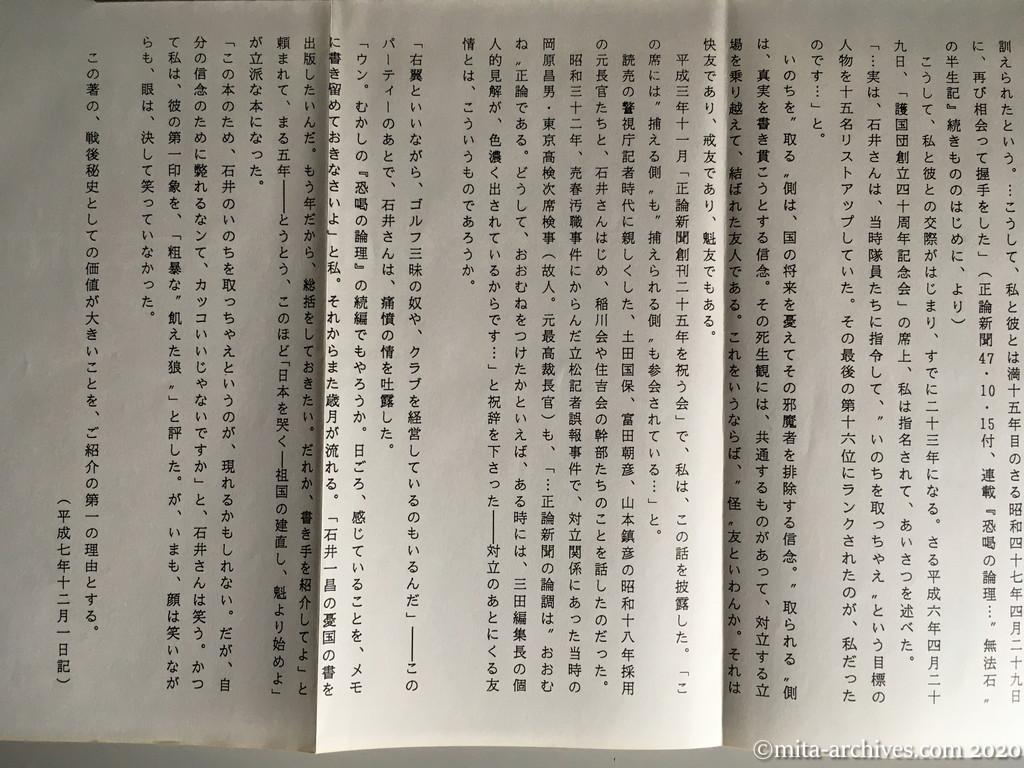 訓えられたという。…こうして、私と彼とは満十五年目のさる昭和四十七年四月二十九日
に、再び相会って握手をした」（正論新聞47・10・15付、連載『恐喝の論理…〝無法石〟
の半生記』続きもののはじめに、より）
こうして、私と彼との交際がはじまり、すでに二十三年になる。さる平成六年四月二十
九日、「護国団創立四十周年記念会」の席上、私は指名されて、あいさつを述べた。
「…実は、石井さんは、当時隊員たちに指令して、〝いのちを取っちゃえ〟という目標の
人物を十五名リストアップしていた。その最後の第十六位にランクされたのが、私だった
のです…」と。
いのちを〝取る〟側は、国の将来を憂えてその邪魔者を排除する信念。〝取られる〟側
は、真実を書き貫こうとする信念。その死生観には、共通するものがあって、対立する立
場を乗り越えて、結ばれた友人である。これをいうならば、〝怪〟友といわんか。それは
快友であり、戒友であり、魁友でもある。
平成三年十一月「正論新聞創刊二十五年を祝う会」で、私は、この話を披露した。「こ
の席には〝捕える側〟も〝捕えられる側〟も参会されている…」と。
読売の警視庁記者時代に親しくした、土田国保、富田朝彦、山本鎮彦の昭和十八年採用
の元長官たちと、石井さんはじめ、稲川会や住吉会の幹部たちのことを話したのだった。
昭和三十二年、売春汚職事件にからんだ立松記者誤報事件で、対立関係にあった当時の
岡原昌男・東京高検次席検事（故人。元最高裁長官）も、「…正論新聞の論調は〝おおむ
ね〟正論である。どうして、おおむねをつけたかといえば、ある時には、三田編集長の個
人的見解が、色濃く出されているからです…」と祝辞を下さった――対立のあとにくる友
情とは、こういうものであろうか。
「右翼といいながら、ゴルフ三昧の奴や、クラブを経営しているのもいるんだ」――この
パーティーのあとで、石井さんは、痛憤の情を吐露した。
「ウン。むかしの『恐喝の論理』の続編でもやろうか。日ごろ、感じていることを、メモ
に書き留めておきなさいよ」と私。それからまた歳月が流れる。「石井一昌の憂国の書を
出版したいんだ。もう年だから、総括をしておきたい。だれか、書き手を紹介してよ」と
頼まれて、まる五年――とうとう、このほど「日本を哭く――祖国の建直し、魁より始めよ」
が立派な本になった。
「この本のため、石井のいのちを取っちゃえというのが、現れるかもしれない。だが、自
分の信念のために斃れるなンて、カッコいいじゃないですか」と、石井さんは笑う。かつ
て私は、彼の第一印象を、「粗暴な〝飢えた狼〟」と評した。が、いまも、顔は笑いなが
らも、眼は、決して笑っていなかった。
この著の、戦後秘史としての価値が大きいことを、ご紹介の第一の理由とする。
（平成七年十二月一日記）
©mita-archives.com 2020